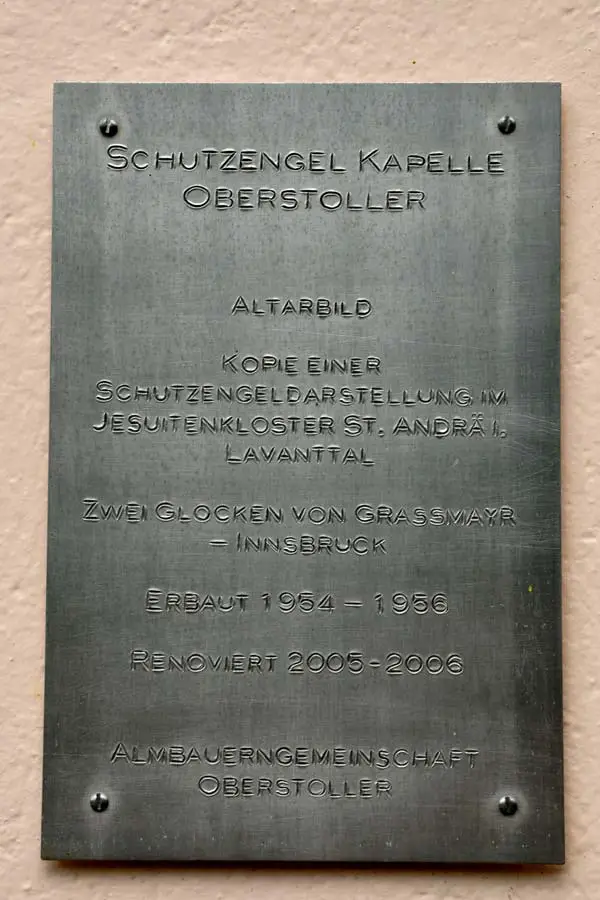 SCHUTZENGEL KAPELLE
OBERSTOLLER
ALTARBILD
KOPIE EINER
SCHUTZENGELDARSTELLUNG IM
JESUITENKLOSTER ST. ANDRÄ I.
LAVANTTAL
ZWEI GLOCKEN VON GRASSMAYR
– INNSBRUCK
ERBAUT 1954 – 1956
RENOVIERT 2005-2006
ALMBAUERNGEMEINSCHAFT
OBERSTOLLER